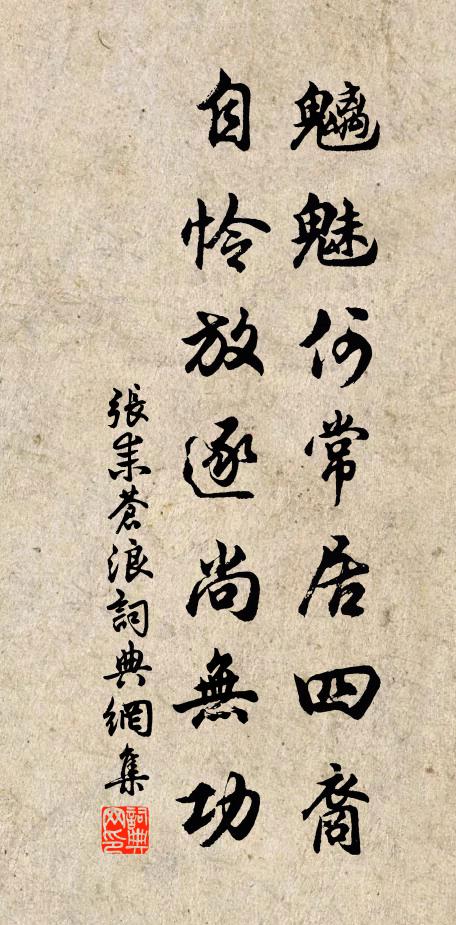 魑魅何常居四裔
自怜放逐尚無功
張耒蒼浪詞典網集
詞典网印